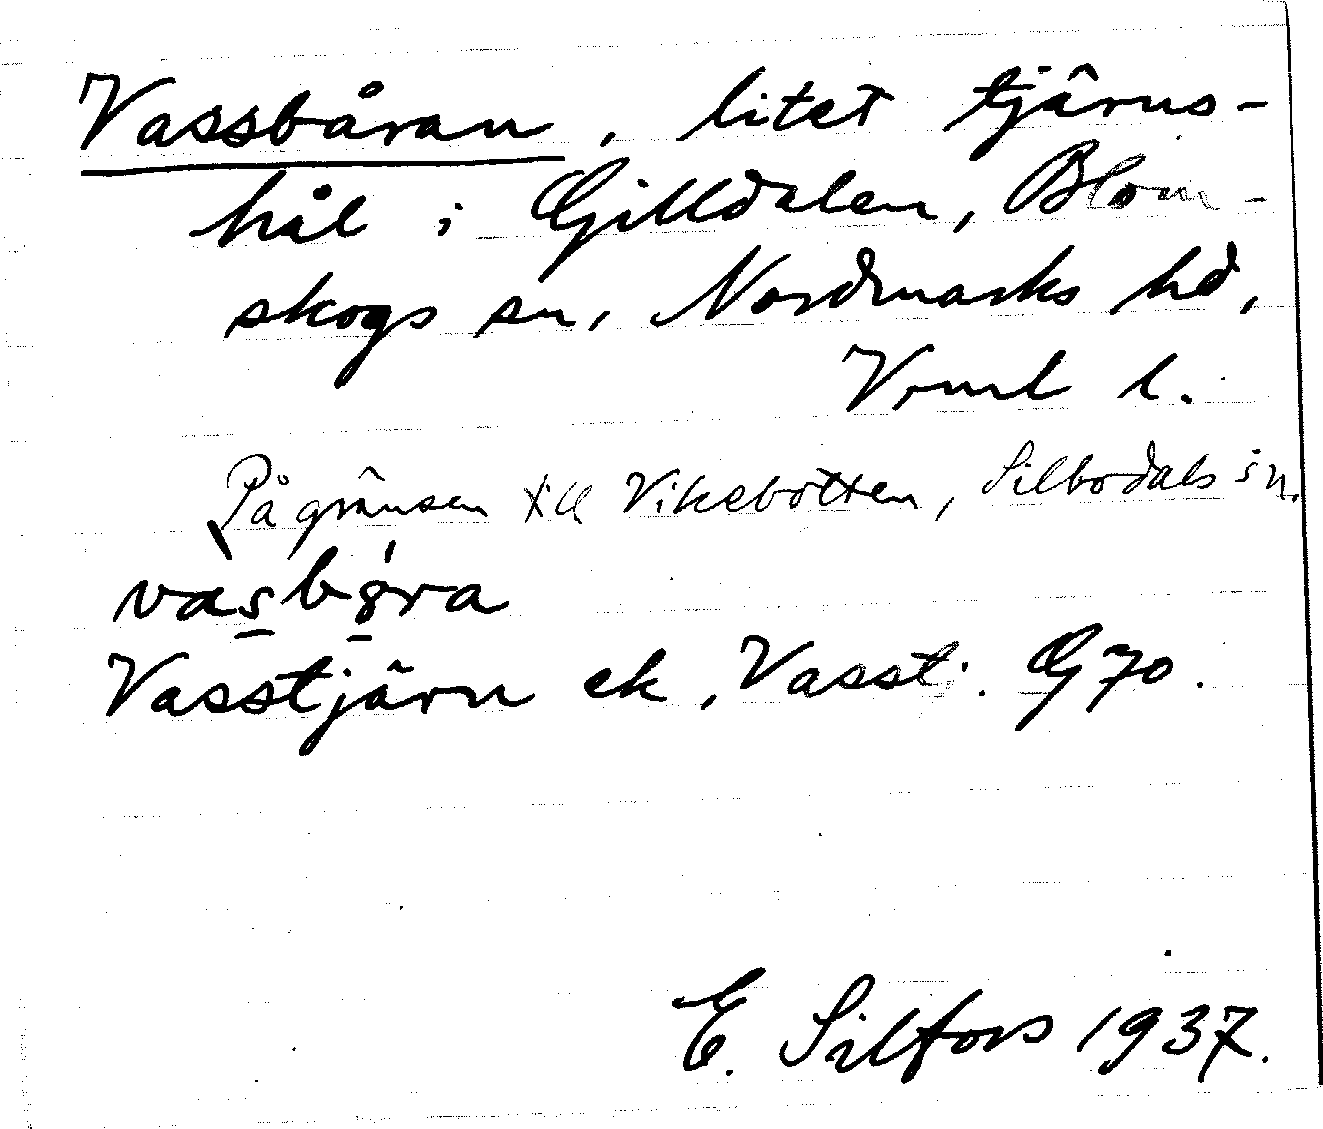 Vassbåran, litet tjärns-
hål i Gilldalen, Blom-
skogs sn, Nordmarks hd,
Vrml l.
På gränsen till Vikebotten, Silbodals sn.
Vasstjärn ek, Vasstj. G 70.
E. Silfors 1937.